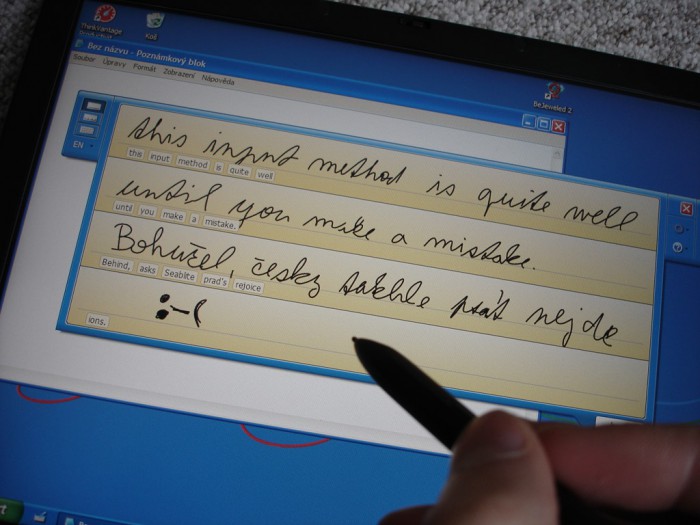 ThinkVantage
Koš
BeJeweled 2
Bez názvu - Poznámkový blok
Soubor Úpravy Formát Zobrazení Nápověda
EN
this input method is quite well
this input method is quite well
until you make a mistake.
until you make a mistake.
Bohužel, česky takhle psát nejde
Behind, asks Seablite prad's rejoice
:-(
ions.